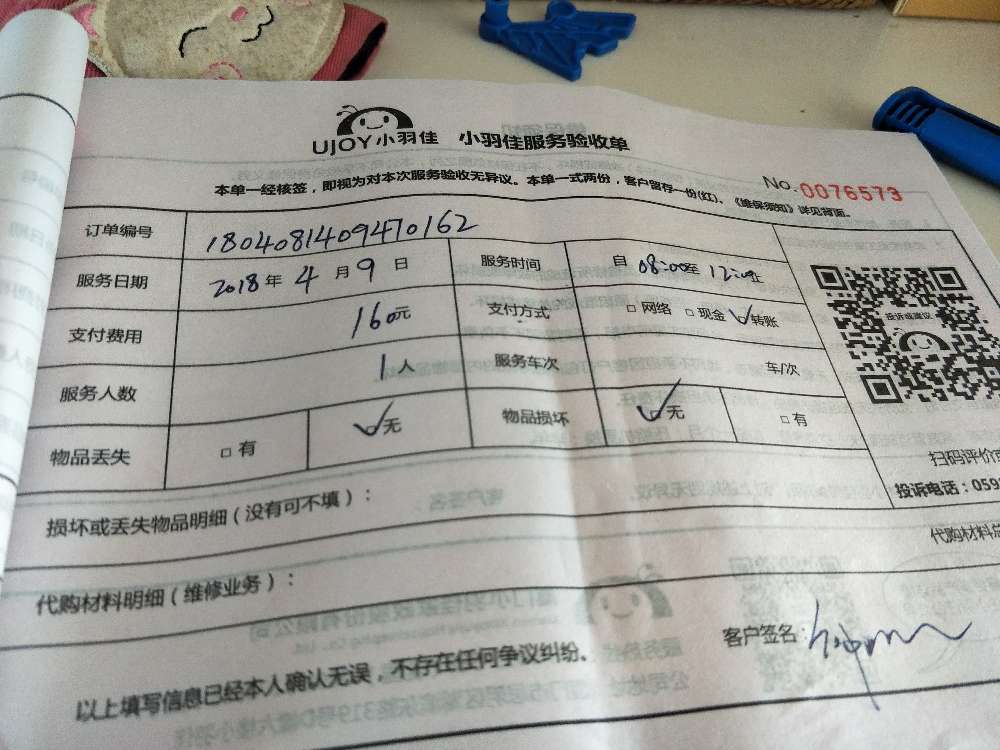 UJOY小羽佳 小羽佳服务验收单
No.0076573
本单一经核签，即视为对本次服务验收无异议。本单一式两份，客户留存一份(红)、《维保须知》详见背面。
订单编号 1804081409470162
服务日期 2018年4月9日 服务时间 自08:00至12:00止
支付费用 160元 支付方式 □网络 □现金 ☑转账
投诉或建议
服务人数 1人 服务车次 车/次
物品丢失 □有 ☑无 物品损坏 ☑无 □有
扫码评价
投诉电话：059
损坏或丢失物品明细（没有可不填）：
代购材料总
代购材料明细（维修业务）：
客户签名：
以上填写信息已经本人确认无误，不存在任何争议纠纷。